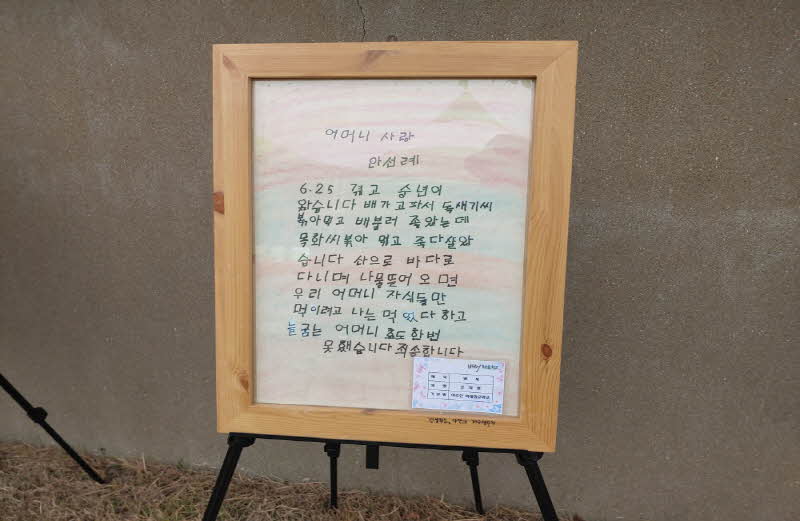 어머니 사랑
안선례
6.25 겪고 숭년이
왔습니다 배가고파서 독새기씨
볶아먹고 배불러 좋았는데
목화씨볶아 먹고 죽다살았
습니다 산으로 바다로
다니며 나물뜯어 오면
우리 어머니 자식들만
먹이려고 나는 먹었다 하고
늘굶는 어머니 효도한번
못했습니다 죄송합니다